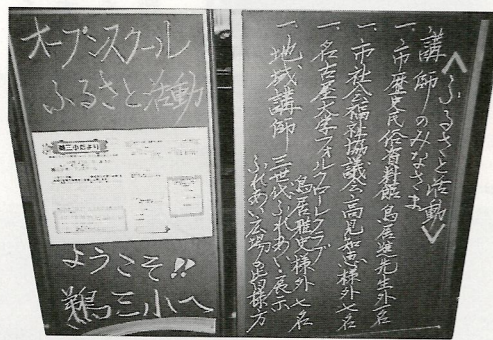 オープンスクール
ふるさと活動
鵜三小だより
ようこそ!!
鵜三小へ
<ふるさと活動>
講師のみなさま
一、市歴史民俗資料館 鳥居建先生外一名
一、市社会福祉協議会 高見知恵様外七名
一、名古屋大学フォークロークラブ
鳥居雅史様外七名
一、地域講師 三世代ふれあい・展示
ふれあい広場の皆様方